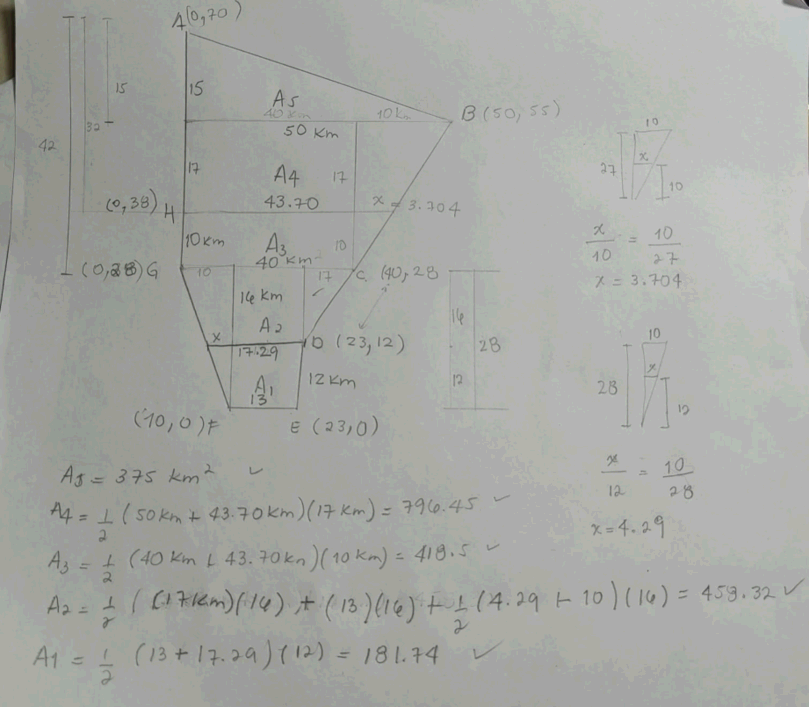 A(0,70)
15
15
A5
40 km
10km
B (50, 55)
50 Km
10
42
32
17
A4
17
27
x
10
(0,38) H
43.70
x = 3.704
10km
A3
10
x/10 = 10/27
(0,28) G
10
40 km
17
C (40, 28
x = 3.704
16 km
A2
16
28
10
x
17.29
D (23, 12)
28
x
12
A1
12 km
12
13
(10,0) F
E (23,0)
x/12 = 10/28
x = 4.29
A5 = 375 km² ✓
A4 = 1/2 (50km + 43.70km)(17 km) = 796.45 ✓
A3 = 1/2 (40 km + 43.70km)(10 km) = 418.5 ✓
A2 = 1/2 ((17km)(16) + (13)(16) + 1/2 (4.29 + 10)(16) = 458.32 ✓
A1 = 1/2 (13 + 17.29)(12) = 181.74 ✓